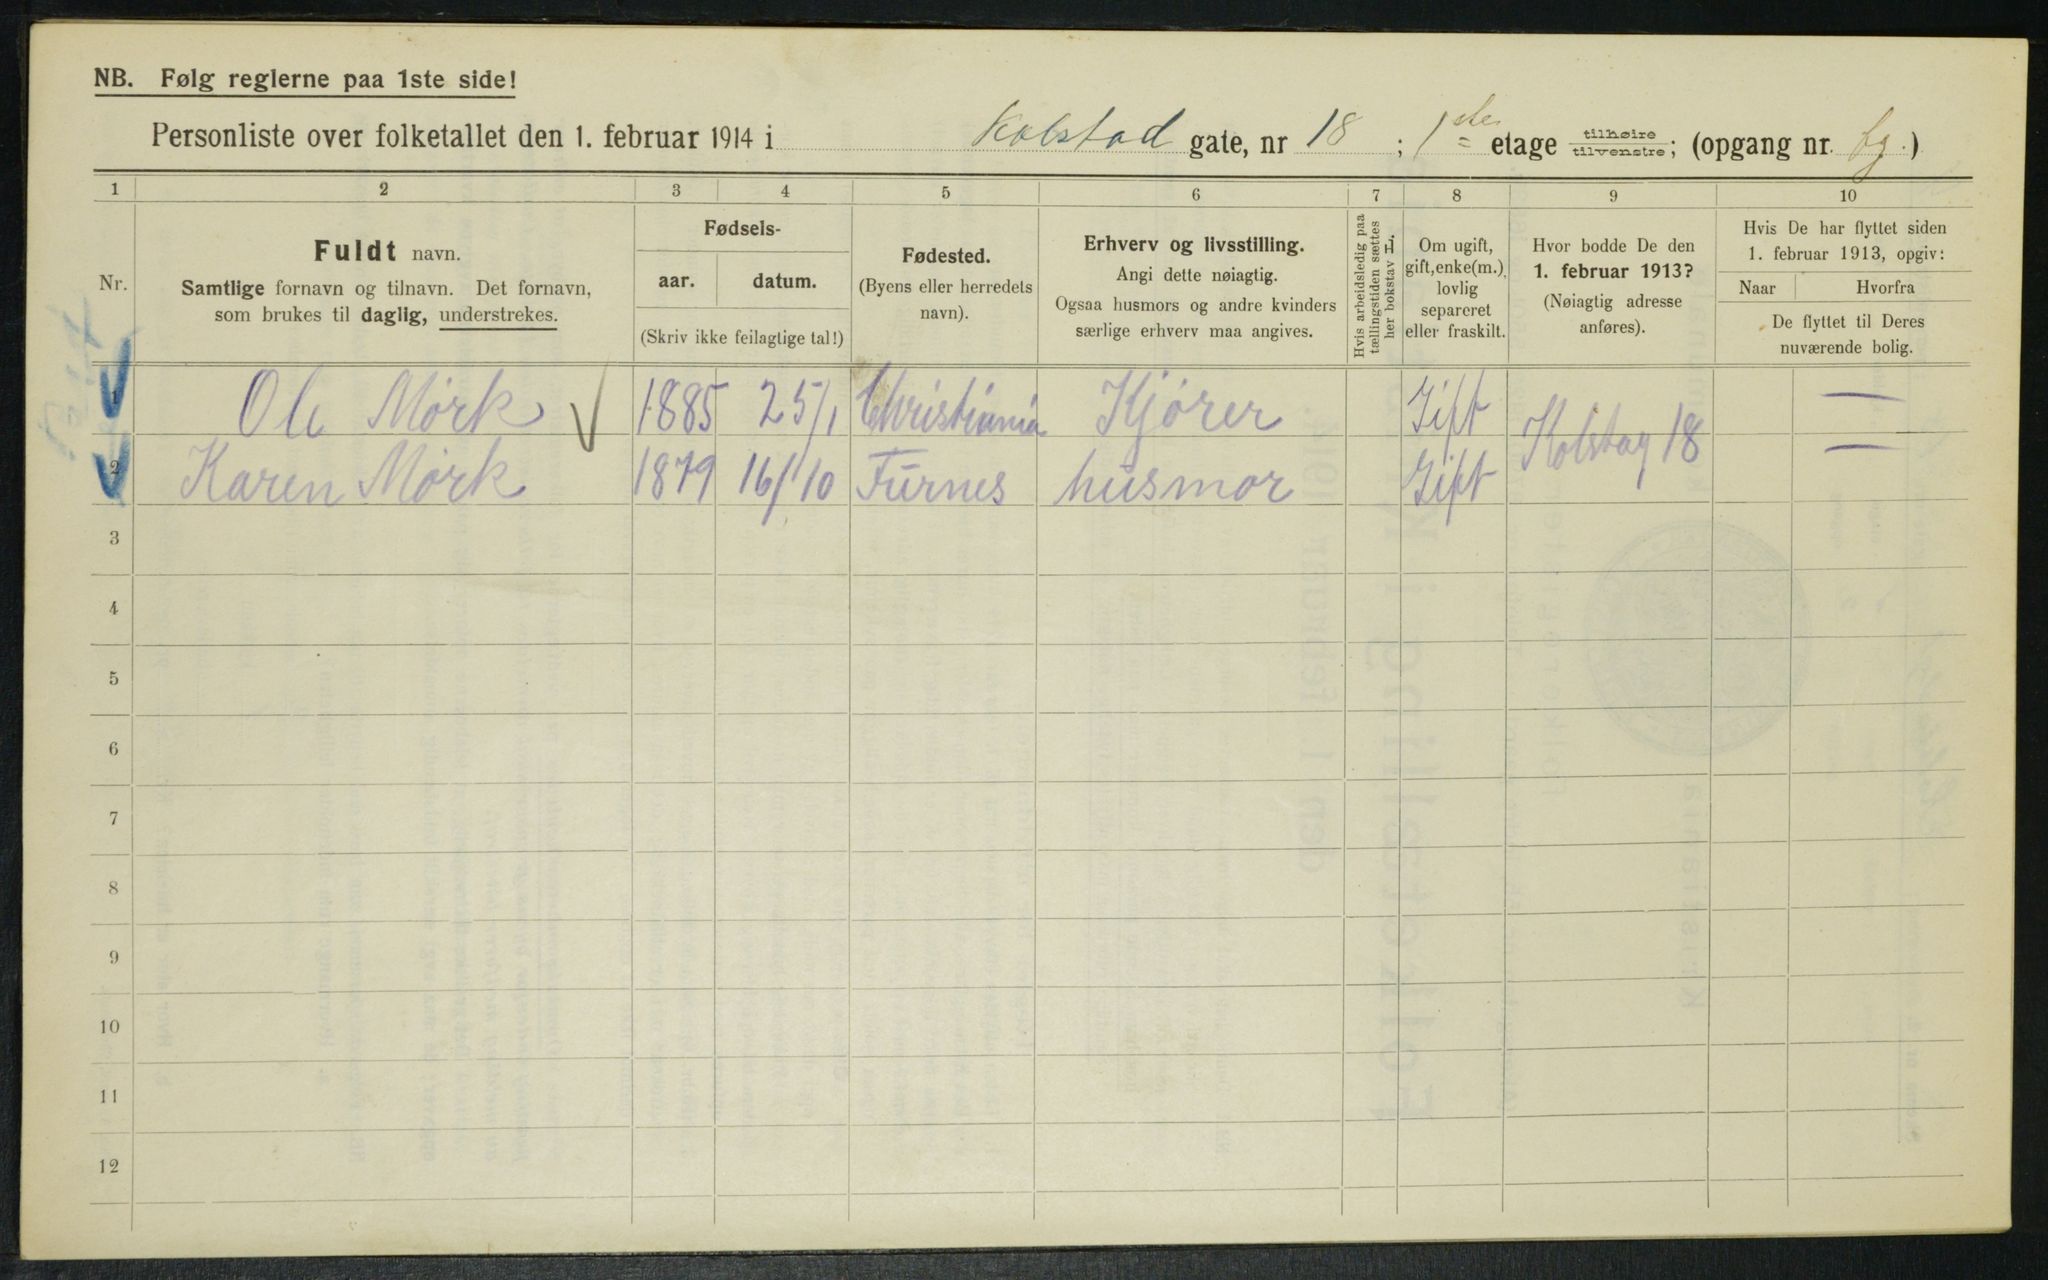 NB. Følg reglerne paa 1ste side!
Personliste over folketallet den 1. februar 1914 i Kolstad gate, nr 18 ; 1ste etage tilhøire tilvenstre; (opgang nr. bg.)
1 2 3 4 5 6 7 8 9 10
Nr.
Fuldt navn.
Samtlige fornavn og tilnavn. Det fornavn,
som brukes til daglig, understrekes.
Fødsels-
aar. datum.
(Skriv ikke feilagtige tal!)
Fødested.
(Byens eller herredets
navn).
Erhverv og livsstilling.
Angi dette nøiagtig.
Ogsaa husmors og andre kvinders
særlige erhverv maa angives.
Hvis arbeidsledig paa
tællingstiden sættes
her bokstav L.
Om ugift,
gift, enke(m.),
lovlig
separeret
eller fraskilt.
Hvor bodde De den
1. februar 1913?
(Nøiagtig adresse
anføres).
Hvis De har flyttet siden
1. februar 1913, opgiv:
Naar Hvorfra
De flyttet til Deres
nuværende bolig.
1 Ole Mørk 1885 25/1 Christiania Kjører Gift —
Kolstag 18
2 Karen Mørk 1879 16/10 Furnes husmor Gift —
3
4
5
6
7
8
9
10
11
12